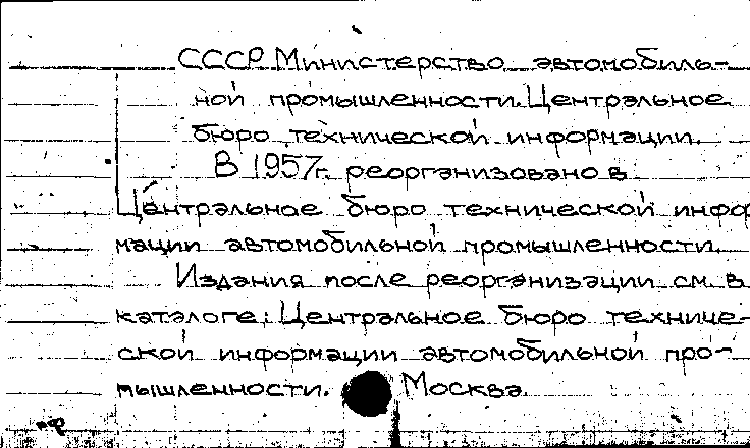 СССР. Министерство автомобиль-
ной промышленности. Центральное
бюро технической информации.
В 1957г. реорганизовано в
Центральное бюро технической инфор
мации автомобильной промышленности.
Издания после реорганизации см. в
каталоге: Центральное бюро техниче-
ской информации автомобильной про-
мышленности. Москва.